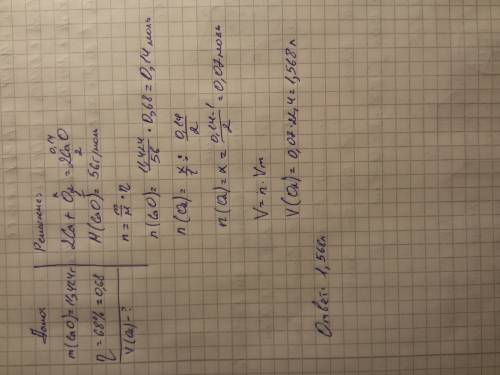 Дано:
m(CaO)=11,424г
η = 68% = 0,68
V(O₂)-?
Решение:
x 0,14
2Ca + O₂ = 2CaO
1 2
M(CaO) = 56г/моль
n = m/M · η
n(CaO) = 11,424/56 · 0,68 = 0,14 моль
n(O₂) = x/1 : 0,14/2
n(O₂) = x = 0,14·1/2 = 0,07моль
V = n · Vm
V(O₂) = 0,07·22,4 = 1,568л
Ответ: 1,568л